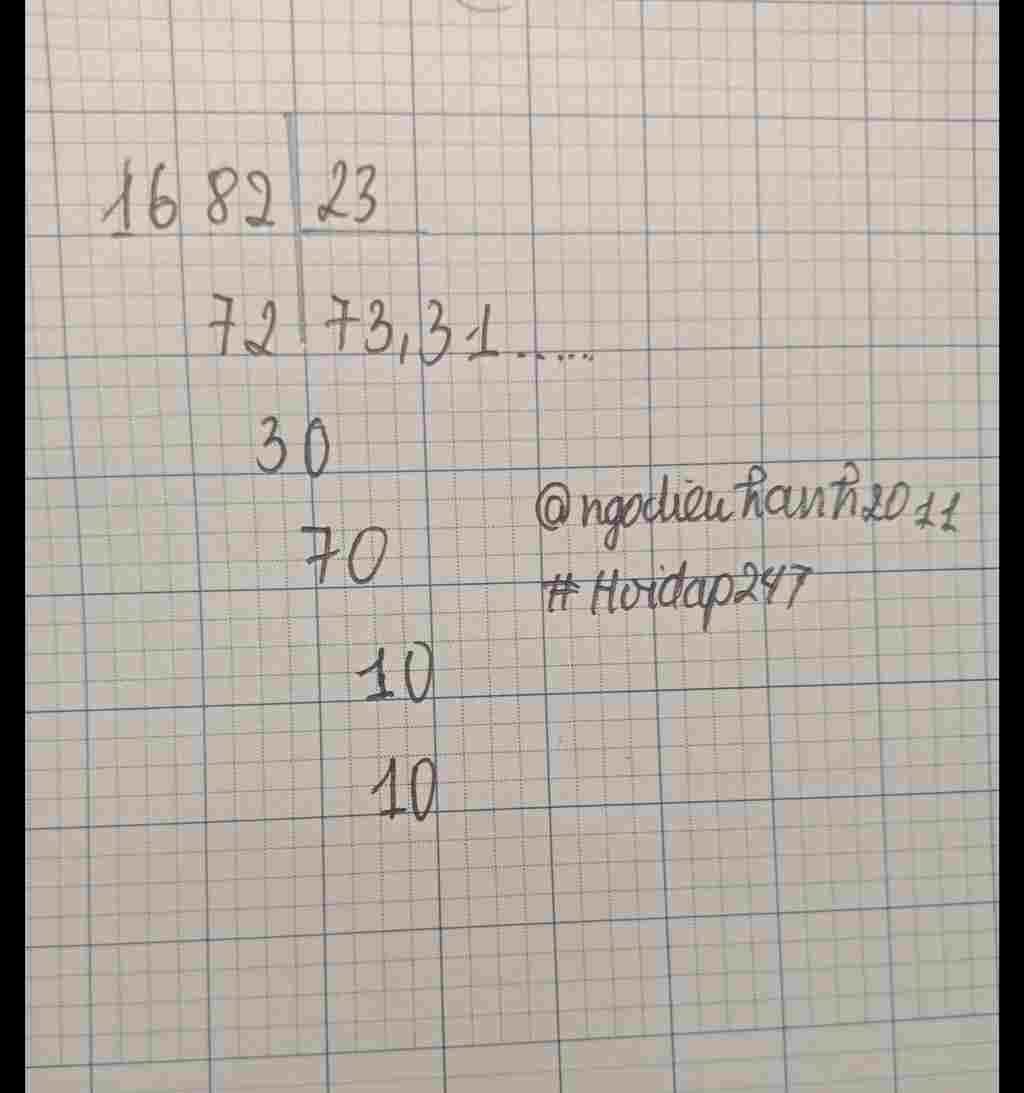 16 82 23
72 73,31......
30
@ngodieuhanh2011
70
#Hoidap247
10
10